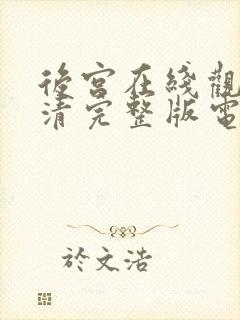 後宮在綫觀
清完整版電
於文浩